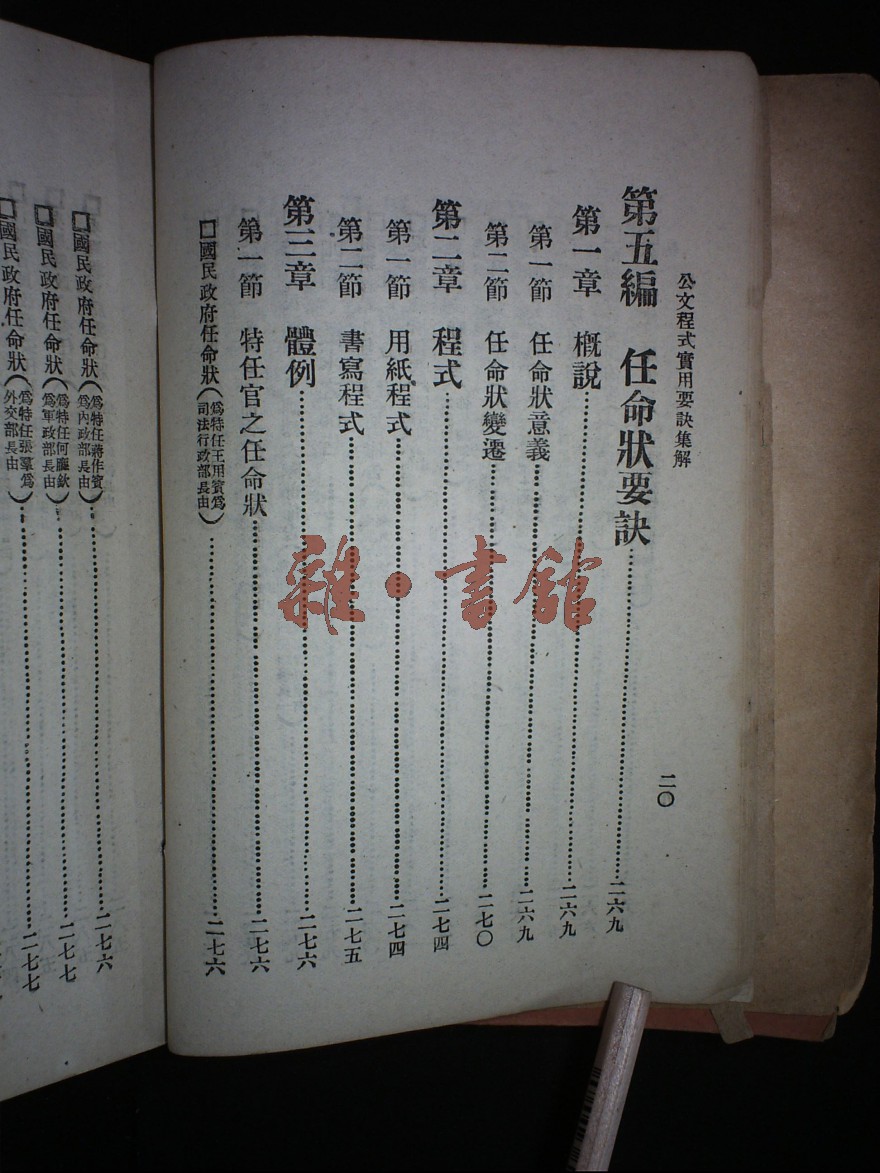 公文程式實用要訣集解
二〇
第五編　任命狀要訣……二六九
第一章　概說……二六九
第一節　任命狀意義……二六九
第二節　任命狀變遷……二七〇
第二章　程式……二七四
第一節　用紙程式……二七四
第二節　書寫程式……二七五
第三章　體例……二七六
第一節　特任官之任命狀……二七六
□國民政府任命狀（爲特任王用賓爲司法行政部長由）……二七六
□國民政府任命狀（爲特任蔣作賓爲內政部長由）……二七六
□國民政府任命狀（爲特任何應欽爲軍政部長由）……二七七
□國民政府任命狀（爲特任張羣爲外交部長由）……二七七
雜·書館